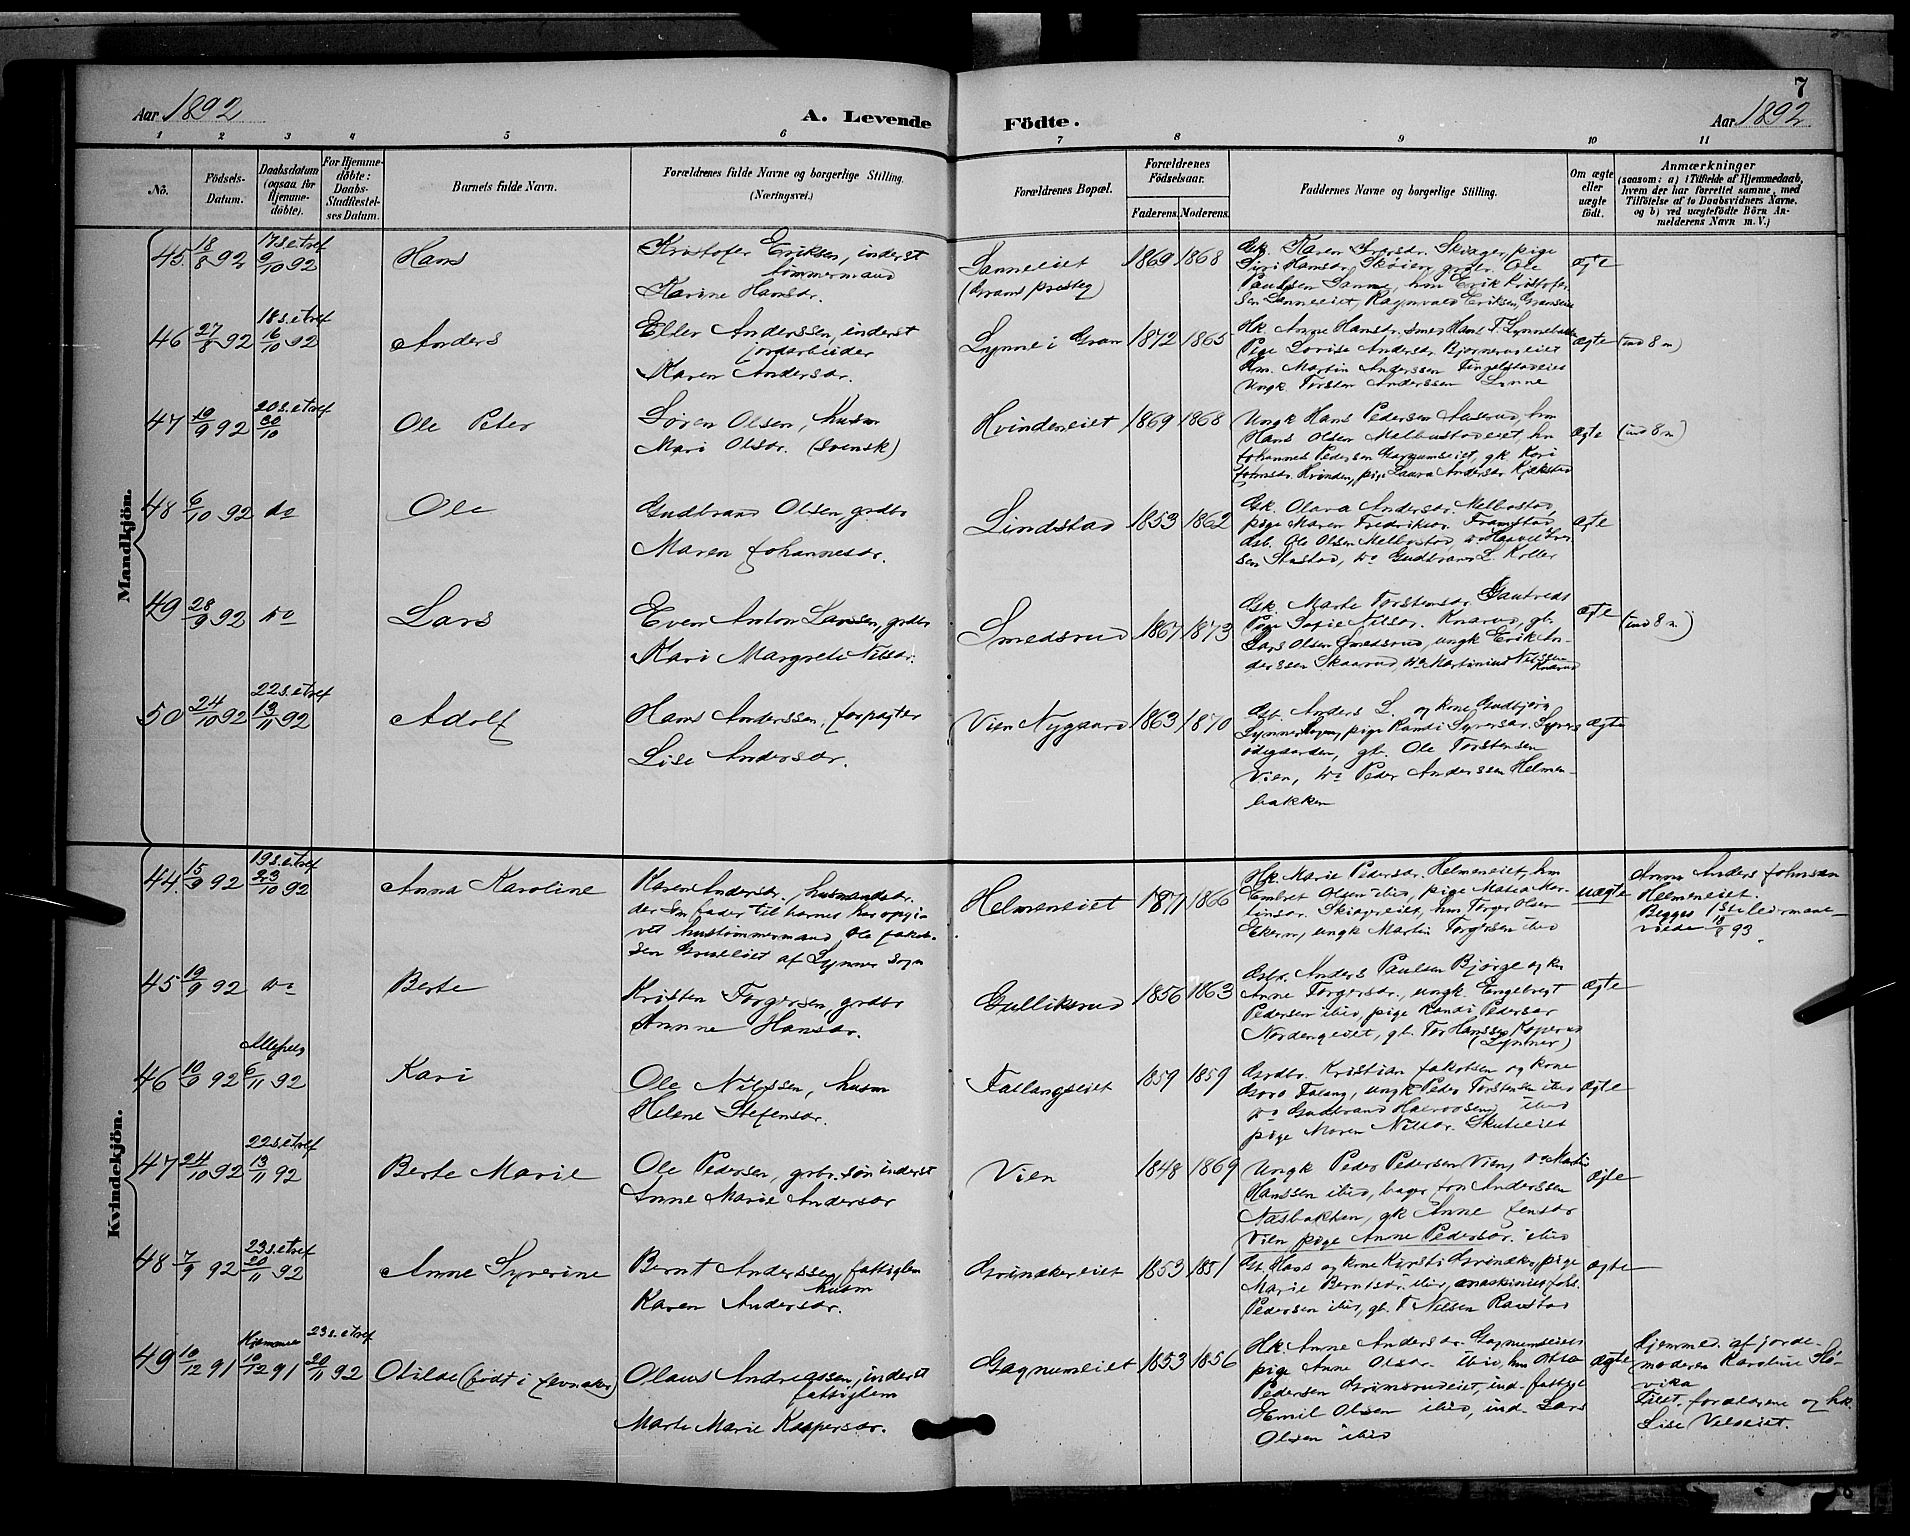 7
Aar 1892
A. Levende
Födte.
Aar 1892
1 2 3 4 5 6 7 8 9 10 11
Nô.
Födsels-
Datum.
Daabsdatum
(ogsaa for
Hjemme-
döbte).
For Hjemme-
döbte:
Daabs-
Stadfæstel-
ses Datum.
Barnets fulde Navn.
Forældrenes fulde Navne og borgerlige Stilling.
(Næringsvei.)
Forældrenes Bopæl.
Forældrenes
Födselsaar.
Faderens. Moderens.
Faddernes Navne og borgerlige Stilling.
Om ægte
eller
uægte
födt.
Anmærkninger
(saasom: a) i Tilfælde af Hjemmedaab,
hvem der har forrettet samme, med
Tilföielse af to Daabsvidners Navne,
og b) ved uægtefödte Börn An-
melderens Navn m. V.)
Mandkjön.
45. 18/8 92
17 s. e tref
9/10 92
Hans
Kristofer Eriksen, inderst
tømmermand
Karine Hansdr.
Sanneeiet
(Grans præsteg)
1869 1868
Gk. Karen Iversdr. Skiager, pige
Siri Hansdr. Skøien, grdbr. Ole
Paulsen Sanne, hm Erik Kristofer-
sen Sanneeiet, Ragnvald Eriksen
ægte
46 27/8 92
18 s. e tref
16/10 92
Anders
Eller Anderssen, inderst
jordarbeider
Karen Andersdr.
Lynne i Gran
1872 1865
Hk. Anne Hansdr. smed Hans T. Lynnebakke
Pige Lovise Andersdr. Bjørnerudeiet
Hm. Martin Anderssen Tingelstadeiet
Ungk. Torsten Anderssen Lynne
ægte
(ind 8 n)
47 19/9 92
20 s. e tref
30/10
Ole Peter
Søren Olsen, husm
Mari Olsdr. (svensk)
Hvindeneiet
1869 1868
Ungk Hans Pedersen Aaserud, hm
Hans Olsen Melbustadeiet, hm
Johannes Pedersen Gagnumseiet, gk. Kari
Johnsdr. Hvinden, pige Laura Andersdr. Kjækstad
ægte
(ind 8 n)
48 6/10 92
do
Ole
Gudbrand Olsen, grdbr
Maren Johannesdr.
Lindstad
1853 1862
Gk. Olava Andersdr. Melbostad,
pige Maren Fredriksdr. Framstad
Gsb. Ole Olsen Melbostad, do Haavel Iver-
sen Stastad, do Gudbrand L. Koller
ægte
49 28/9 92
do
Lars
Even Anton Larssen, grdbr
Kari Margrete Nilsdr.
Smedsrud
1867 1873
Gsk. Marte Torstensdr. Gautvedt
Pige Sofie Nilsdr. Knarud, gb.
Lars Olsen Smedsrud, ungk Erik An-
derssen Skaarud, do Martinius Nilssen
Knarud
ægte
(ind 8 n.)
50 24/10 92
22 s. e tref
13/11 92
Adolf
Hans Anderssen, forpagter
Lise Andersdr.
Vien Nygaard
1863 1870
Gsb. Anders L. og kone Gudbjør
Lynnehagen, pige Randi Syversdr. Syvers
ødegaarden, gb. Ole Torstensen
Vien, do Peder Anderssen Helmen-
bakken
ægte
Kvindekjön.
44. 15/9 92
19 s. e. tref
23/10 92
Anna Karoline
Karen Andersdr., husmandsdr.
der som fader til barnet har opgi-
vet hustømmermand Ole Jakob-
sen Grinieiet af Lynner sogn
Helmeneiet
1871 1866
Hk Marie Pedersdr. Helmeneiet, hm
Embret Olsen ibid, pige Maria Mar-
tinsdr. Skiagereiet, hm Torger Olsen
Ekern, ungk Martin Torgersen ibid
uægte
Anm Anders Johnsen
Helmeneiet
Begges 1ste leiermaal
viede 18/8 93.
45 19/9 92
do
Berte
Kristen Torgersen grdbr
Annne Hansdr.
Gulliksrud
1856 1863
Gsbr. Anders Paulsen Bjørge og kn
Anne Torgersdr., ungk. Engebregt
Pedersen ibid, pige Randi Pedersdr
Nordengeiet, gb. Tor Hanssen Kaperud
(Lynner)
ægte
46 10/9 92
Allehelg
6/11 92
Kari
Ole Nilssen, husm
Helene Stefensdr.
Fallangseiet
1859 1859
Grdbr. Kristian Jakobsen og kone
Goro Falang, ungk Peder Torstensen ibid
do Gudbrand Halvorsen ibid
pige Maren Nilsdr. Skuteeiet
ægte
47 24/10 92
22 s. e tref
13/11 92
Berte Marie
Ole Pedersen, grbr. søn inderst
Anne Marie Andersdr
Vien
1848 1869
Ungk Peder Pedersen Vien, do Martin
Hanssen ibid, bager Jon Anderssen
Næsbakken, gk Anne Jensdr
Vien pige Anne Pedersdr. ibid
ægte
48 7/9 92
23 s. e tref
20/11 92
Anne Syverine
Bernt Anderssen, fattiglem
husm
Karen Andersdr.
Grinakereiet
1853 1851
Gb. Hans og kone Kirsti Grinaker, pige
Marie Berntsdr. ibid, maskinist Jobs.
Pedersen ibid, gb. T Nilsen Raustad
ægte
49 10/12 91
Hjemme
10/12 91
23 s. e tref
20/11 92
Otilde (født i Jevnaker)
Olaus Andreassen, inderst
fattiglem
Marte Marie Kaspersdr.
Gagnumeiet
1853 1856
Hk. Anne Andersdr. Gagnumseiet
pige Anne Olsdr. ibid, hm Ole
Pedersen Grimsrudeiet, ind. fattigl
Emil Olsen ibid, ind. Lars
Olsen ibid
ægte
Hjemmed. af jorde-
moderen Karoline Slø-
vika
Tilst. forældrene og hk.
Lise Velseiet.